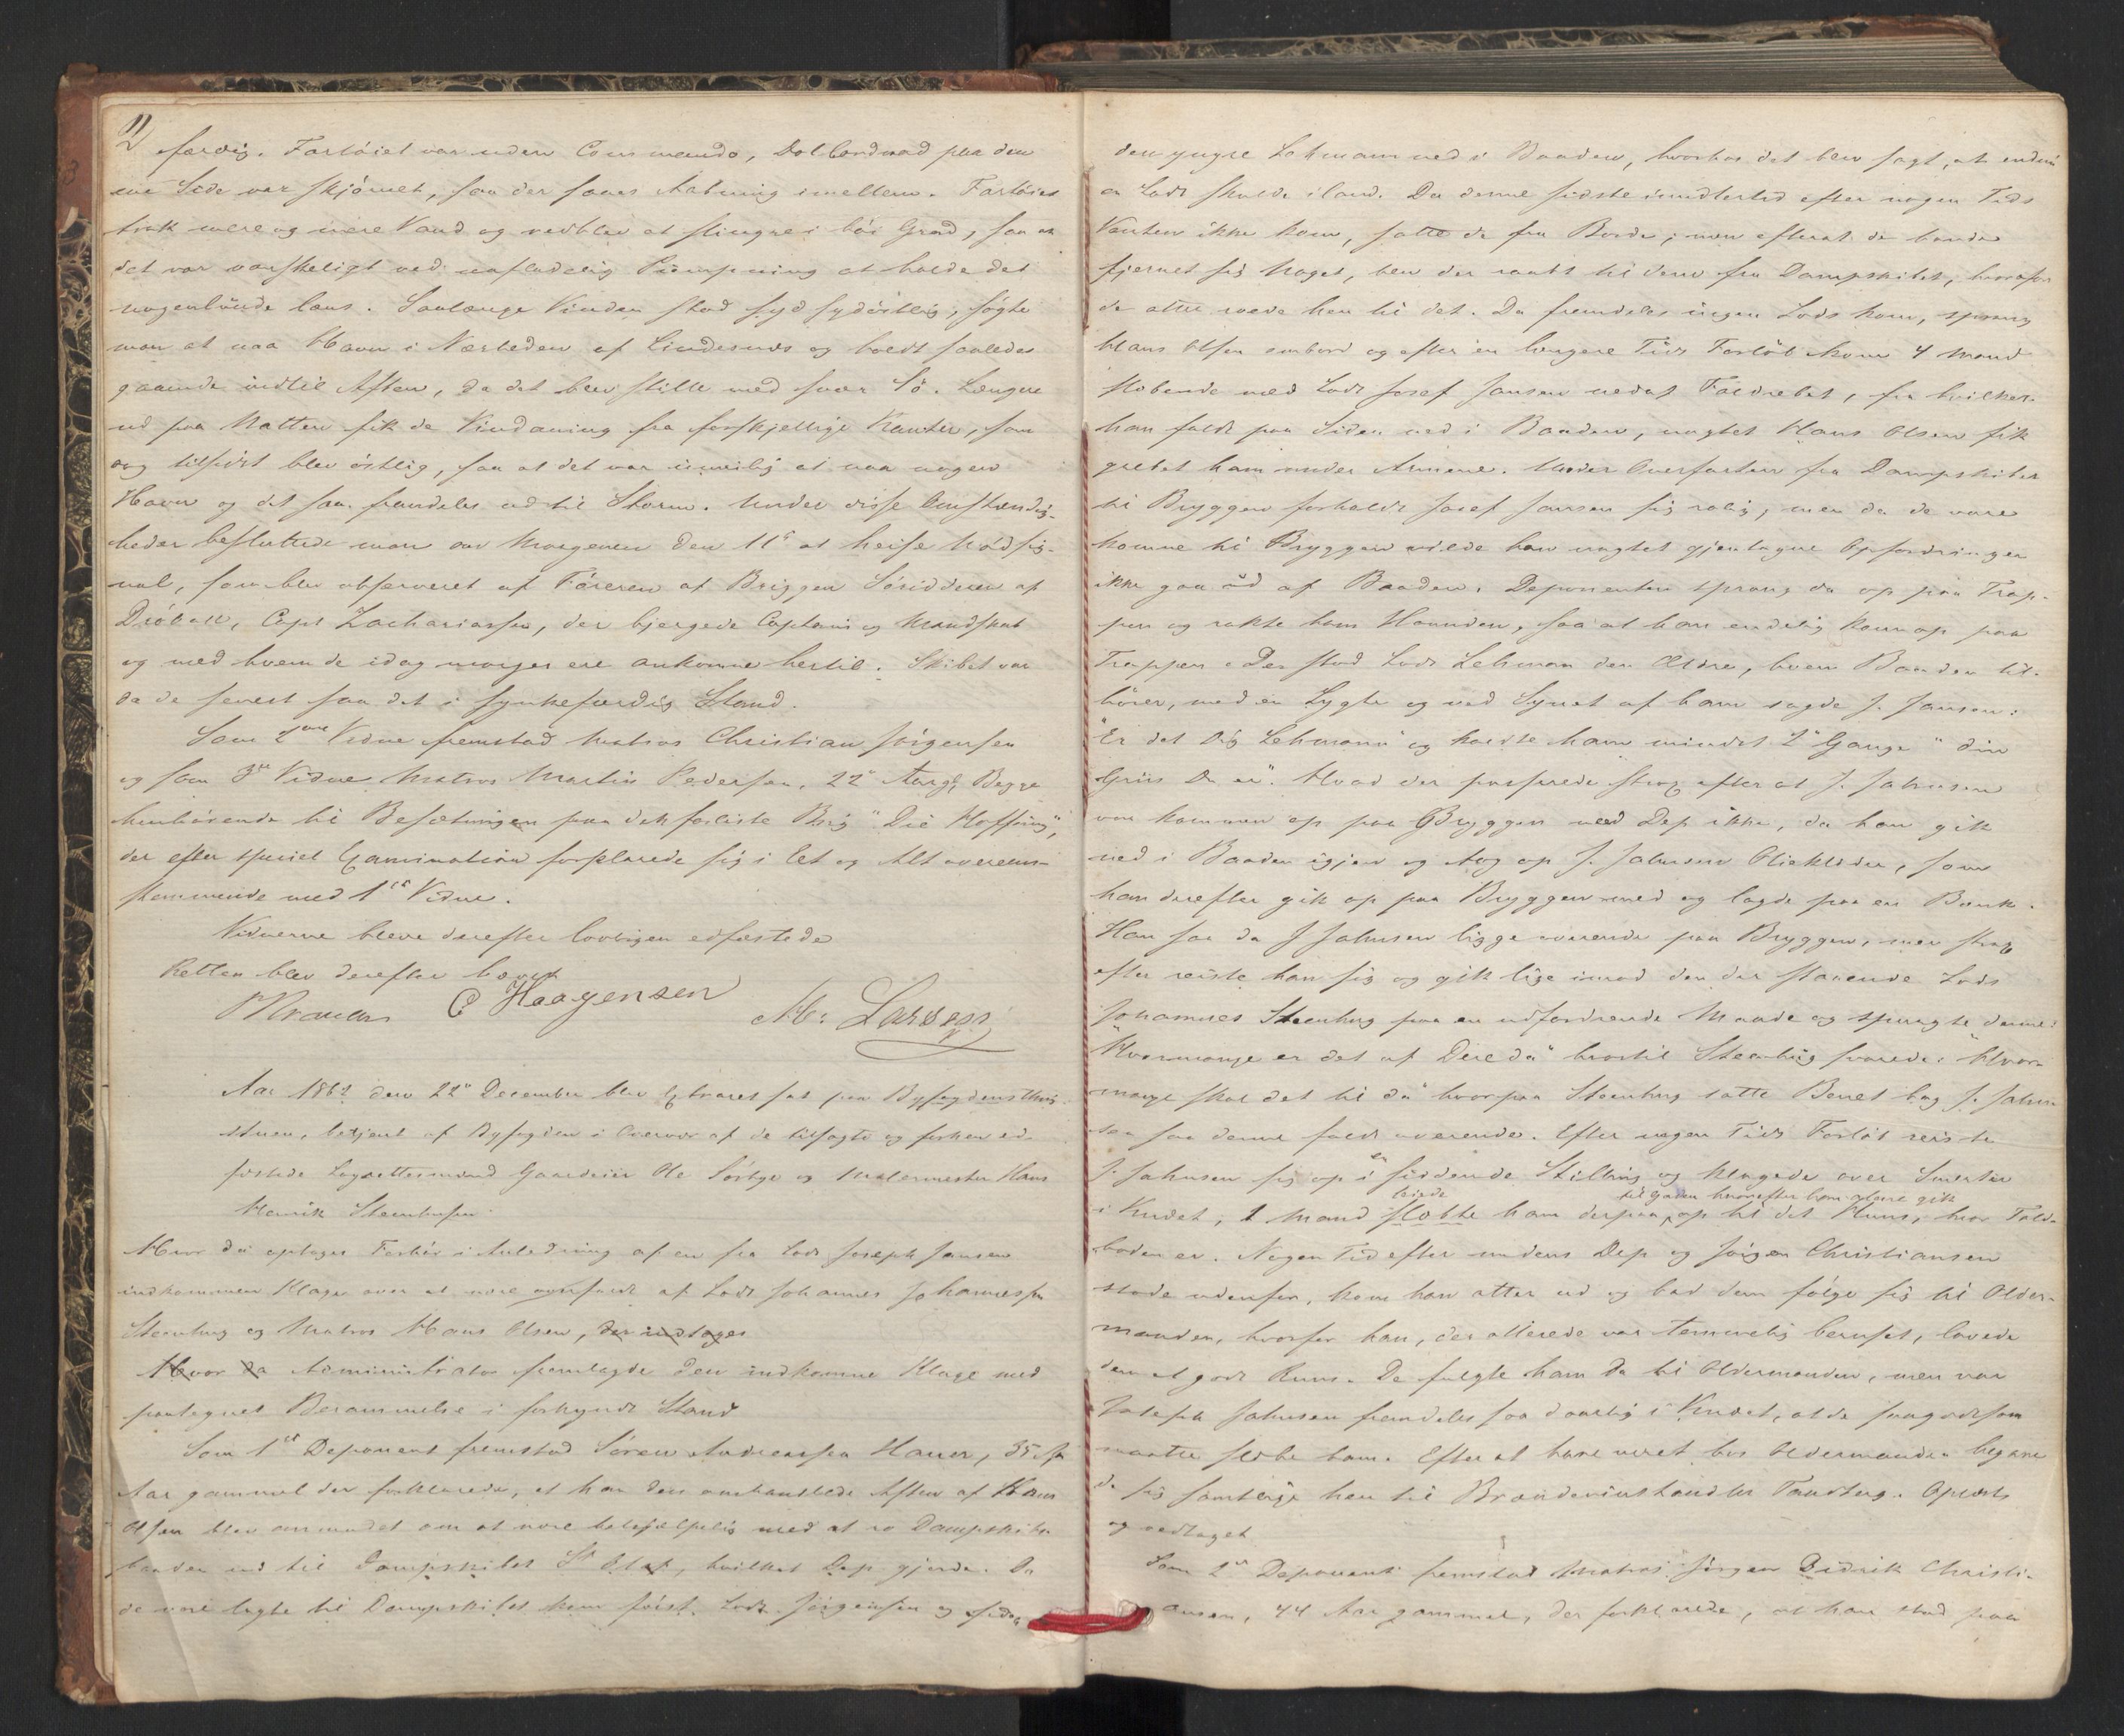 2
færdig. Fartøiet var uden Commando, Dolbordvad paa den
ene Side var skjørnet, saa der saaes Aabning imellem. Fartøiet
trak mere og mere Vand og vedblev at slingre i høi Grad, saa at
det var vanskeligt ved uafladelig Pumpning at holde det
nogenlunde læns. Saalænge Vinden stod syd sydøstlig, søgte
man at naa Havn i Nærheden af Lindesnæs og holdt saaledes
gaaende indtil Aften, da det blev stille med svær Sø. Længere
ud paa Natten fik de Vind fra forskjellige Kanter, som
og tilsidst blev østlig, saa at det var umulig at naa nogen
Havn og det saa fremdeles ud til Storm. Under disse Omstændig-
heder besluttede man om Morgenen den 11te at heise Nødsig-
nal, som blev observeret af Føreren af Briggen Søridderen af
Drøbak, Capt Zachariassen, der bjergede Captain og Mandskab
og med hvem de idag morges ere ankomne hertil. Skibet var
da de senest saa det i synkefærdig Stand.
Som 2det Vidne fremstod Matros Christian Jörgensen
og som 3die Vidne Matros Martin Pedersen, 22 Aar gl, Begge
henhørende til Besætningen paa det forliste Brig "Die Hoffnung",
der efter speciel Examination forklarede sig i Et og Alt overeens-
stemmende med 1ste Vidne.
Vidnerne bleve derefter lovligen edfæstede
Retten blev derefter hævet
C Haagensen M: Larssen
Aar 1862 den 22de December blev Extraret sat paa Byfogdens Thing-
stuen, betjent af Byfogden i Overvær af de tilsagte og forhen ed-
fæstede Lagrettesmænd Gaardeier Ole Sørbye og Malermester Hans
Henrik Steenhusen.
Hvor da optages Forhør i Anledning af en fra Lods Joseph Jansen
indkommen Klage over at være overfaldt af Lods Johannes Johannessen
Steenberg og Matros Hans Olsen, der indtages
Hvor da Administrator fremlagde den indkomne Klage med
paategnet Berammelse i forkyndt Stand
Som 1ste Deponent fremstod Søren Andreassen Hauer, 35
Aar gammel der forklarede, at han den omhandlede Aften af Hans
Olsen blev anmodet om at være behjælpelig med at ro Dampskibs-
baaden ud til Dampskibet St Olaf, hvilket Dep. gjorde. Da
de vare lagte til Dampskibet kom først Lods Jørgensen og siden
den yngre Lehmann ned i Baaden, hvorhos det blev sagt, at endnu
en Lods skulde iland. Da denne sidste imidlertid efter nogen Tids
Venten ikke kom, satte de fra Borde; men efterat de havde
fjernet sig Noget, blev der raabt til dem fra Dampskibet, hvorfor
de atter roede hen til det. Da fremdeles ingen Lods kom, sprang
Hans Olsen ombord og efter en længere Tids Forløb kom 4 Mand
slæbende med Lods Josef Jansen nedaf Faldrebet, fra hvilket
han faldt paa Siden ned i Baaden, uagtet Hans Olsen fik
grebet ham under Armene. Under Overfarten fra Dampskibet
til Bryggen forholdt Josef Jansen sig rolig, men da de vare
komne til Bryggen vilde han uagtet gjentagne Opfordringer
ikke gaa ud af Baaden. Deponenten sprang da op paa Trap-
pen og rakte ham Haanden, saa at han endelig kom op paa
Trappen. Der stod Lods Lehman den Ældre, hvem Baaden til-
hører, med en Lygte og ved Synet af ham sagde J. Jansen:
"Er det Dig Lehmann" og kaldte ham mindst 2 Gange "din
Griis Du er". Hvad der passerede strax efter at J. Jahnsen
var kommen op paa Bryggen veed Dep ikke, da han gik
ned i Baaden igjen og tog op J. Jahnsens Olieklæder, som
han derefter gik op paa Bryggen med og lagde paa en Bænk.
Han saa da J Jahnsen ligge overende paa Bryggen, men strax
efter reiste han sig og gik lige imod den der staaende Lods
Johannes Steenberg paa en udfordrende Maade og spurgte denne:
"Hvormange er det af Dere da" hvortil Steenberg svarede: "Hvor-
mange skal det til da" hvorpaa Steenberg satte Benet bag J. Jahn-
sen saa denne faldt overende. Efter nogen Tids Forløb reiste
J. Jahnsen sig op i en siddende Stilling og klagede over Smerter
i Knæet, 1 Mand slæbte leiede ham derpaa op til Gaden hvorefter han alene gik til det Huus, hvor Told-
boden er. Nogen Tid efter medens Dep og Jörgen Christiansen
stode udenfor, kom han atter ud og bad dem følge sig til Older-
manden, hvorfor han, der allerede var temmelig beruset, lovede
dem et godt Ruus. De fulgte ham da til Oldermanden, men var
Joseph Jahnsen fremdeles saa daarlig i Knæet, at de saagodtsom
maatte slæbe ham. Efter at have været hos Oldermanden begave
de sig samtlige hen til Brændeviinshandler Tandberg. Oplæst
og vedtaget
Som 2den Deponent fremstod Matros Jörgen Didrik Christi-
ansen, 44 Aar gammel, der forklarede, at han stod paa